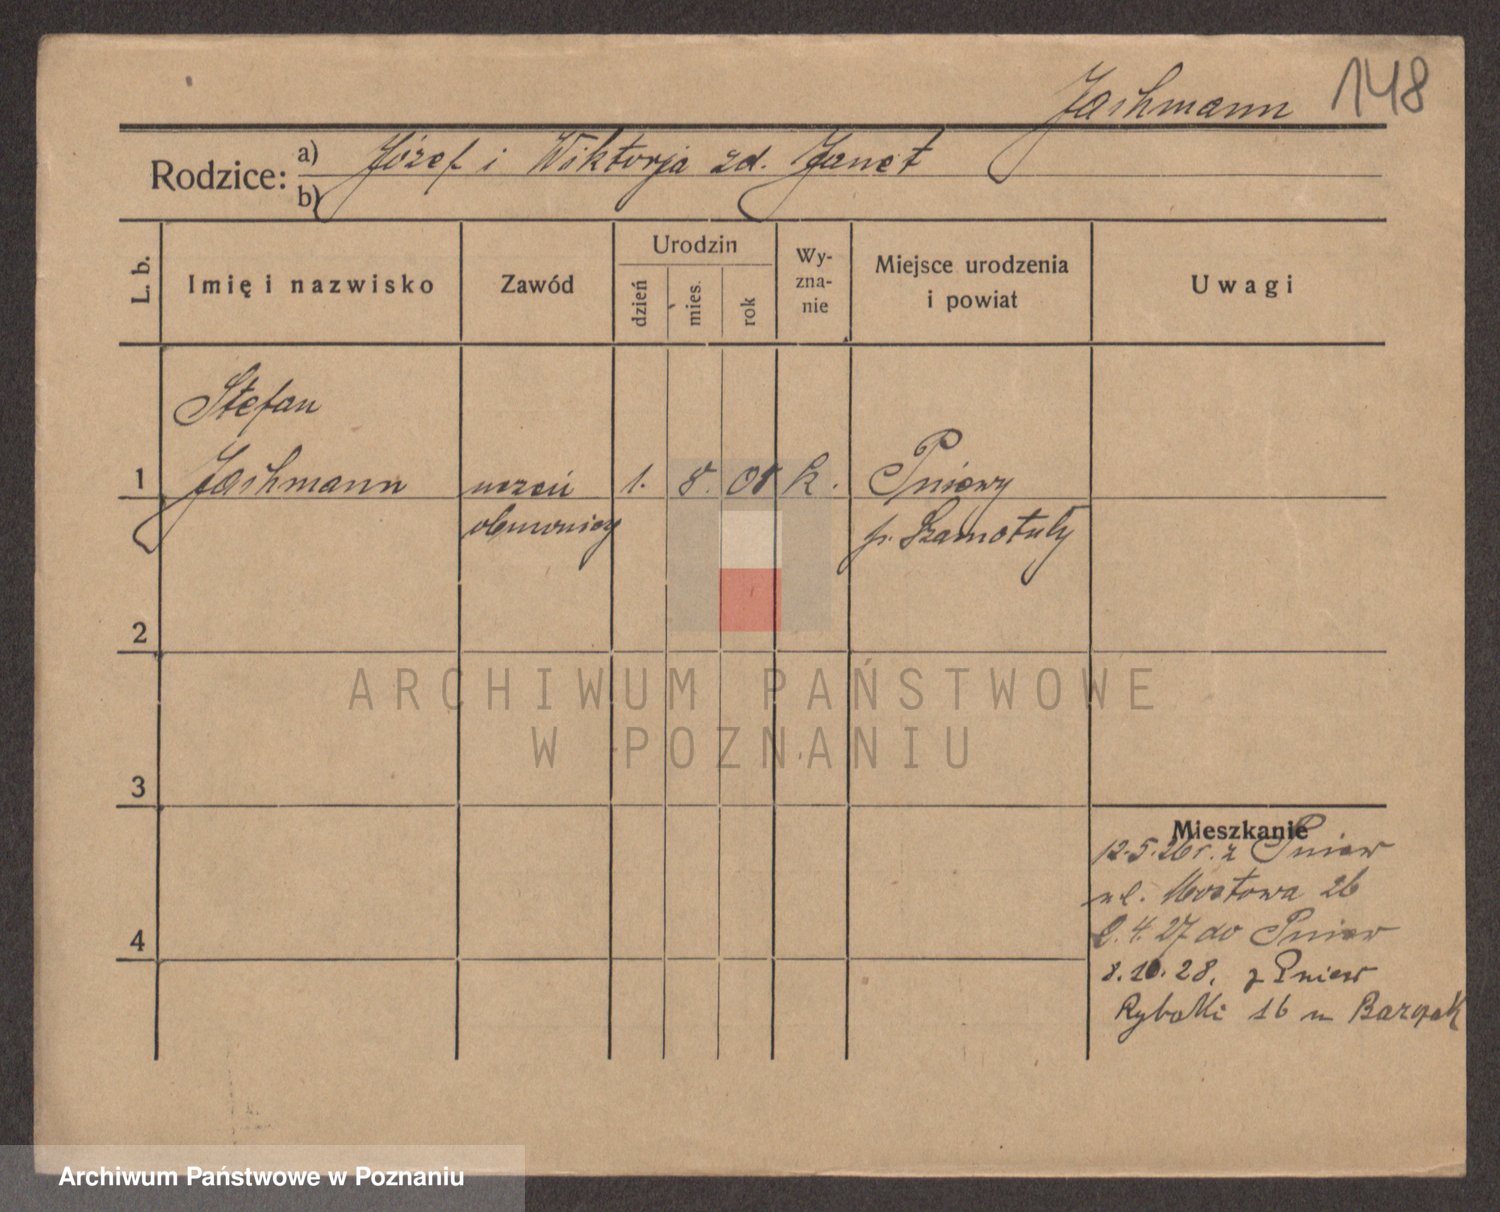 148
Jashmann
Rodzice:
a) Józef i Wiktorja zd. Janet
b)
L. b.
Imię i nazwisko
Zawód
Urodzin
dzień
mies.
rok
Wy-
zna-
nie
Miejsce urodzenia
i powiat
Uwagi
Stefan
1 Jashmann uczeń 1. 8. 08 k. Pniewy
p. Szamotuły
2
ARCHIWUM PAŃSTWOWE
W POZNANIU
3
Mieszkanie
12.5.26 r. z Pniew
ul. Mostowa 26
4. 27 do Pniew
4
8.10.28. z Pniew
Rybaki 16 u
Archiwum Państwowe w Poznaniu